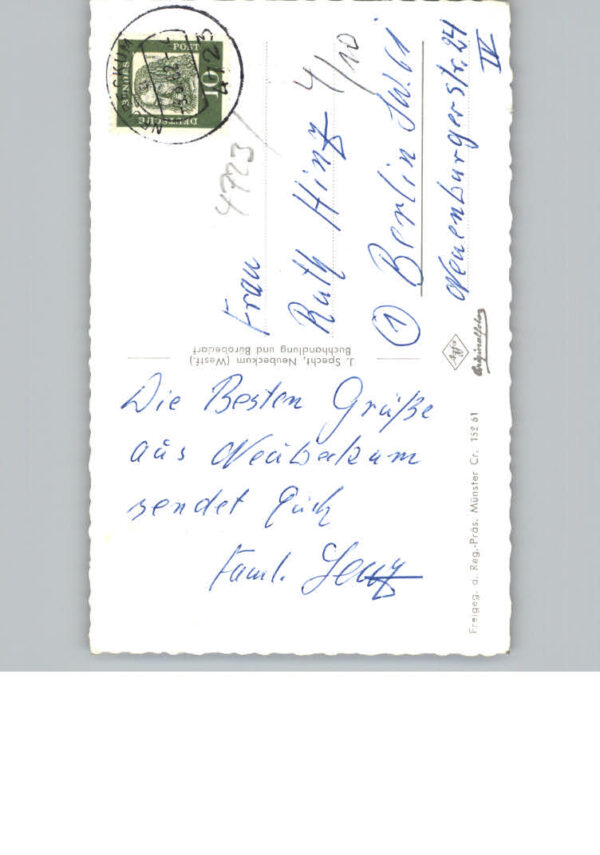 Die Besten Grüße
aus Neubekum
sendet Euch
Faml.
Frau
Ruth Hinz
① Berlin SW 61
Neuenburgerstr. 24
IV
4723/
4/10
DEUTSCHE
BUNDES
POST
10
J. Specht, Neubeckum (Westf.)
Buchhandlung und Bürobedarf
Agfa
Originalfoto
Freigeg. d. Reg.-Präs. Münster Cr. 152 61